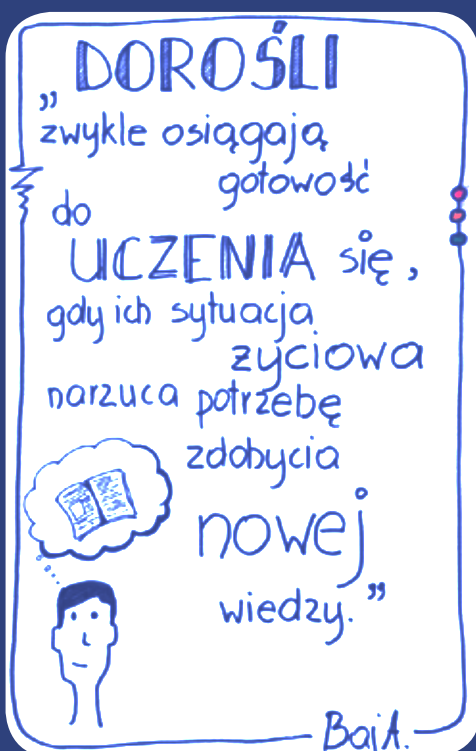 DOROŚLI
„zwykle osiągają
gotowość
do
UCZENIA się,
gdy ich sytuacja
życiowa
narzuca potrzebę
zdobycia
nowej
wiedzy.”
BaiA.